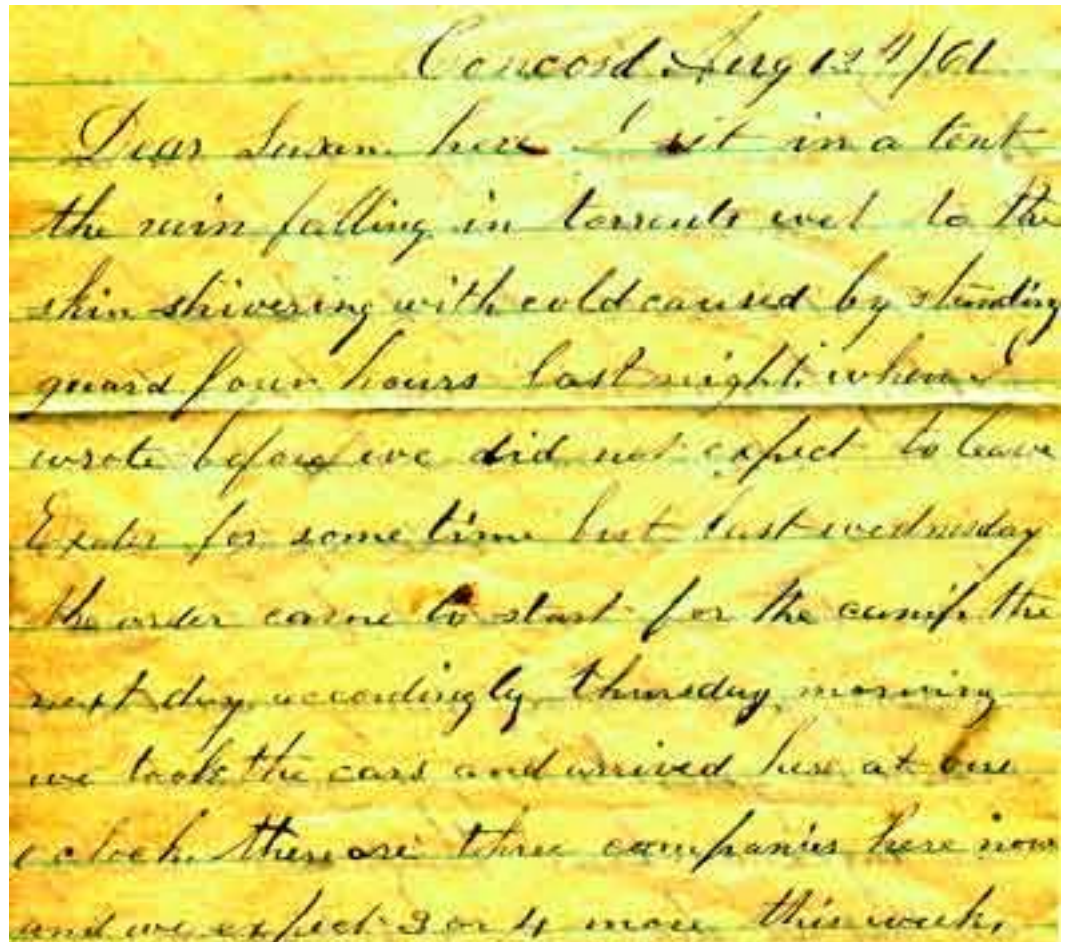 Concord Aug 12th/61
Dear Susan here I sit in a tent
the rain falling in torrents wet to the
skin shivering with cold caused by standing
guard four hours last night, when I
wrote before we did not expect to leave
Exeter for some time but last wednesday
the order came to start for the camp the
next day, accordingly thursday morning
we took the cars and arrived here at one
oclock. there are three companies here now
and we expect 3 or 4 more this week,